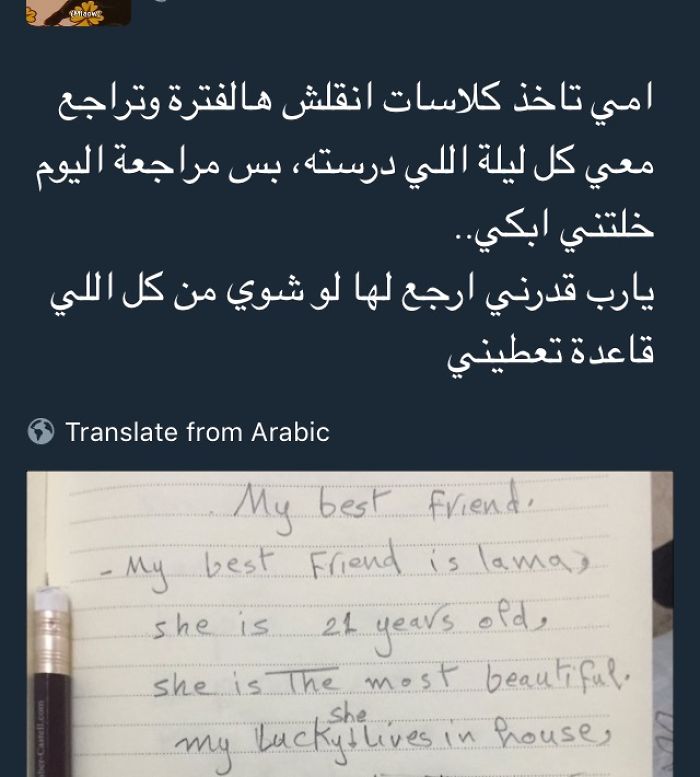 (Miaow!
امي تاخذ كلاسات انقلش هالفترة وتراجع
معي كل ليلة اللي درسته، بس مراجعة اليوم
خلتني ابكي..
يارب قدرني ارجع لها لو شوي من كل اللي
قاعدة تعطيني
Translate from Arabic
My best friend.
- My best Friend is lama,
she is 21 years old,
she is The most beautiful.
she
my lucky lives in house,
ber-Castell.com